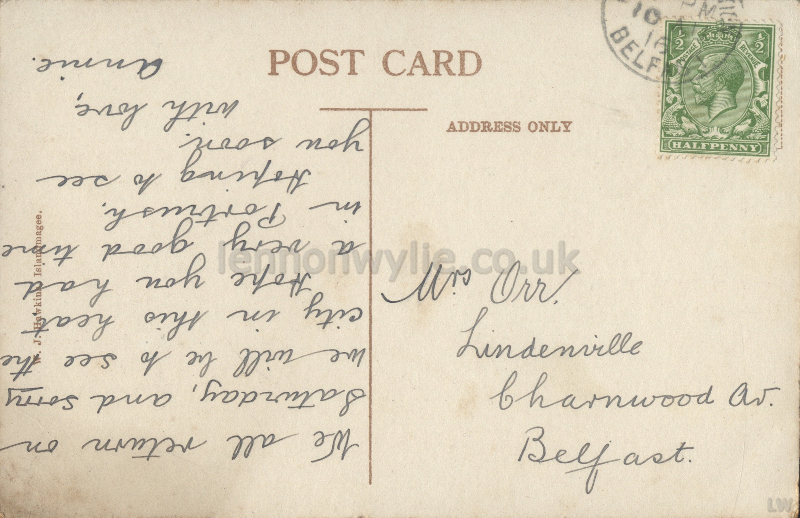 POST CARD
ADDRESS ONLY
½ ½
POSTAGE REVENUE
HALFPENNY
PM
10
16
BELFAST
We all return on
Saturday, and sorry
we will be to see the
city in this heat
Hope you had
a very good time
in Portrush.
Hoping to see
you soon.
with love,
Annie.
Mrs Orr.
Lindenville
Charnwood Av.
Belfast.
J. Hawkins, Islandmagee.
lennonwylie.co.uk
LW